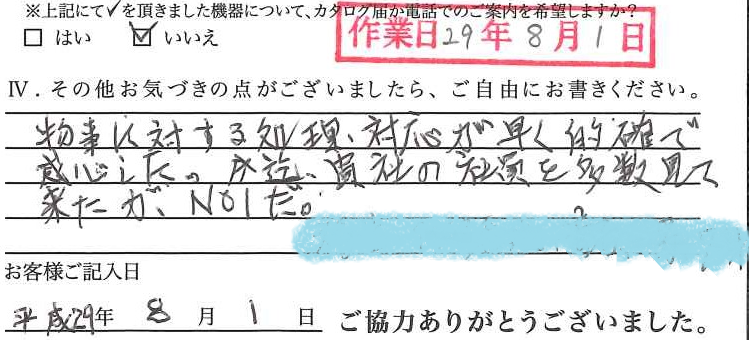 ※上記にて✓を頂きました機器について、カタログ届か電話でのご案内を希望しますか?
□ はい ☑ いいえ
作業日29年8月1日
Ⅳ．その他お気づきの点がございましたら、ご自由にお書きください。
物事に対する処理、対応が早く的確で
感心した。 貴社の社員を多数見て
来たが、NO1だ。
お客様ご記入日
平成29年 8 月 1 日 ご協力ありがとうございました。